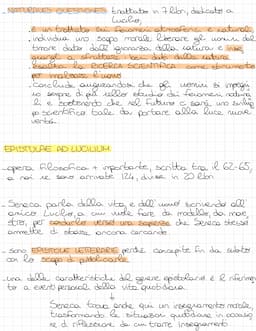 - NATURALES QUAESTIONES trattato in 7 libri, dedicato a
Lucilio,
. è un trattato sui fenomeni atmosferici e naturali
. individua uno scopo morale: liberare gli uomini dal
timore dato dall'ignoranza della natura e
a sfruttare beni dati dalla natura
. esalta la RICERCA SCIENTIFICA come strumento
per migliorare l'uomo
. conclude augurandosi che gli uomini si impegni
no sempre di più nello studio dei fenomeni natura
li e sostenendo che nel futuro ci sarà uno svilup
po scientifico tale da portare alla luce nuove
verità.
EPISTULAE AD LUCILIUM
- opera filosofica + importante, scritta tra il 62-65,
a noi ne sono arrivate 124, divise in 20 libri
- Seneca parla della vita e dell'uomo scrivendo all'
amico Lucilio, a cui vuole fare da modello, da mae
stro, per condurlo verso una sapienza che Seneca stesso
ammette di stare ancora cercando.
- sono EPISTOLE LETTERARIE perché concepite fin da subito
con lo scopo di pubblicarle
- una delle caratteristiche del genere epistolare è il riferimen
to a eventi personali della vita quotidiana.
Seneca trova anche qui un insegnamento morale,
trasformando le situazioni quotidiane in occasio
ne di riflessione da cui trarre insegnamento